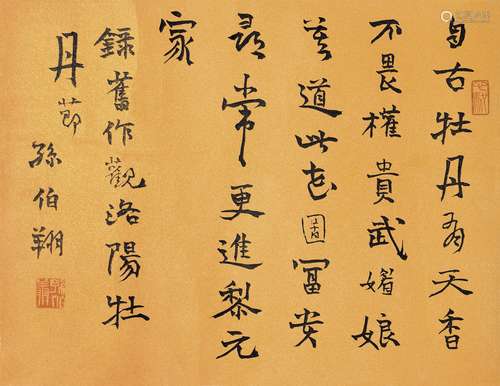 自古牡丹天香
不畏權貴武媚娘
莫道此花冨貴
尋常更進黎元
家
錄舊作觀洛陽牡
丹節
孫伯翔